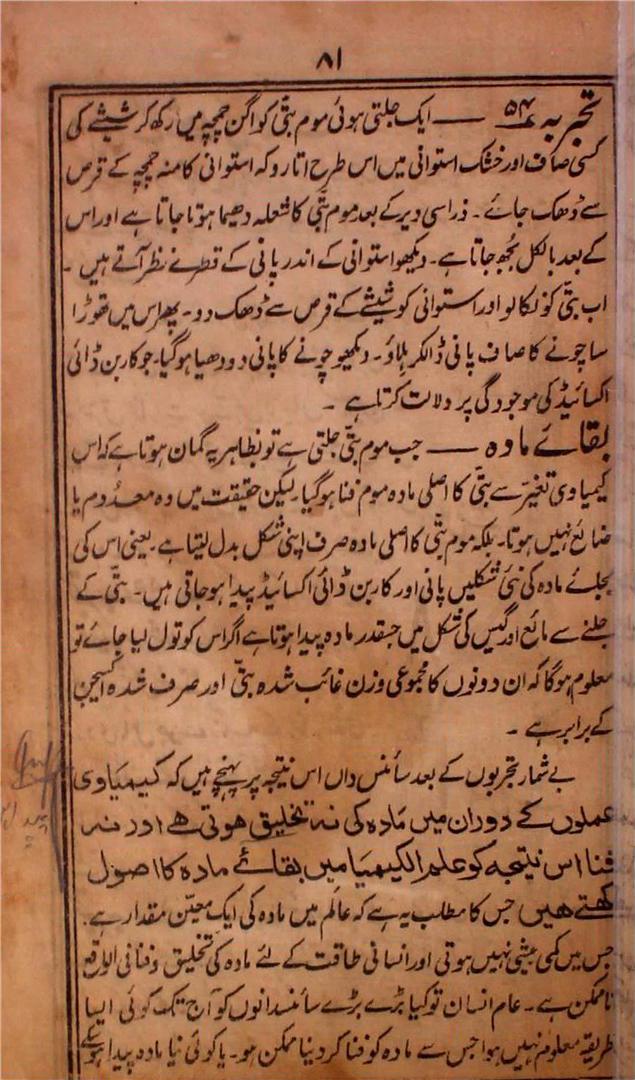 ۸۱
تجربہ ۵۴ — ایک جلتی ہوئی موم بتّی کو اگن چمچہ میں رکھ کر شیشے کی
کسی صاف اور خشک استوانی میں اس طرح اتارو کہ استوانی کا منہ چمچہ کے قرص
سے ڈھک جائے۔ ذراسی دیر کے بعد موم بتّی کا شعلہ دھیما ہوتا جاتا ہے اور اس
کے بعد بالکل بُجھ جاتا ہے۔ دیکھو استوانی کے اندر پانی کے قطرے نظر آتے ہیں۔
اب بتّی کو نکالو اور استوانی کو شیشے کے قرص سے ڈھک دو۔ پھر اس میں تھوڑا
سا چونے کا صاف پانی ڈالکر ہلاؤ۔ دیکھو چونے کا پانی دودھیا ہوگیا۔ جو کاربن ڈائی
اکسائیڈ کی موجودگی پر دلات کرتا ہے۔
بقائے مادہ — جب موم بتّی جلتی ہے تو بظاہر یہ گمان ہوتا ہے کہ اس
کیمیاوی تغیّر سے بتّی کا اصلی مادہ موم فنا ہوگیا۔ لیکن حقیقت میں وہ معدُوم یا
ضائع نہیں ہوتا۔ بلکہ موم بتّی کا اصلی مادہ صرف اپنی شکل بدل لیتا ہے۔ یعنی اس کی
بجائے مادہ کی نئی شکلیں پانی اور کاربن ڈائی اکسائیڈ پیدا ہو جاتی ہیں۔ بتّی کے
جلنے سے مائع اور گیس کی شکل میں جسقدر مادہ پیدا ہوتا ہے اگر اس کو تول لیا جائے تو
معلوم ہوگا کہ ان دونوں کا مجموعی وزن غائب شدہ بتّی اور صرف شدہ اکسیجن
کے برابر ہے۔
بے شمار تجربوں کے بعد سائنس داں اس نتیجہ پر پہنچے ہیں کہ کیمیاوی
عملوں کے دوران میں مادہ کی نہ تخلیق ہوتی ہے اور نہ
فنا اس نتیجہ کو علم الکیمیا میں بقائے مادہ کا اصول
کہتے ہیں جس کا مطلب یہ ہے کہ عالَم میں مادہ کی ایک معیّن مقدار ہے۔
جس میں کمی بیشی نہیں ہوتی اور انسانی طاقت کے لئے مادہ کی تخلیق و فنا فی الواقع
ناممکن ہے۔ عام انسان تو کیا بڑے بڑے سائنسدانوں کو آج تک کوئی ایسا
طریقہ معلوم نہیں ہوا جس سے مادہ کو فنا کر دینا ممکن ہو۔ یا کوئی نیا مادہ پیدا ہوسکے